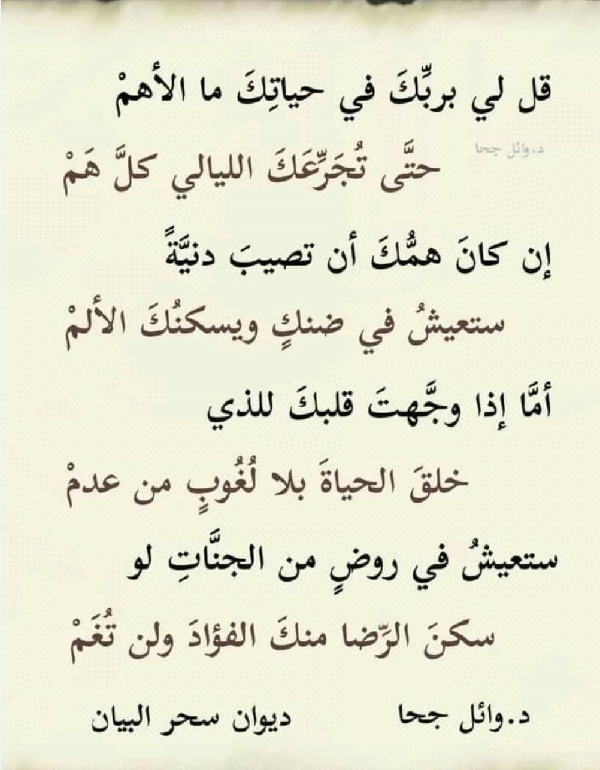 قل لي بربِّكَ في حياتِكَ ما الأهمْ
د.وائل جحا
حتَّى تُجَرِّعَكَ الليالي كلَّ هَمْ
إن كانَ همُّكَ أن تصيبَ دنيَّةً
ستعيشُ في ضنكٍ ويسكنُكَ الألمْ
أمَّا إذا وجَّهتَ قلبكَ للذي
خلقَ الحياةَ بلا لُغُوبٍ من عدمْ
ستعيشُ في روضٍ من الجنَّاتِ لو
سكنَ الرِّضا منكَ الفؤادَ ولن تُغَمْ
د.وائل جحا ديوان سحر البيان